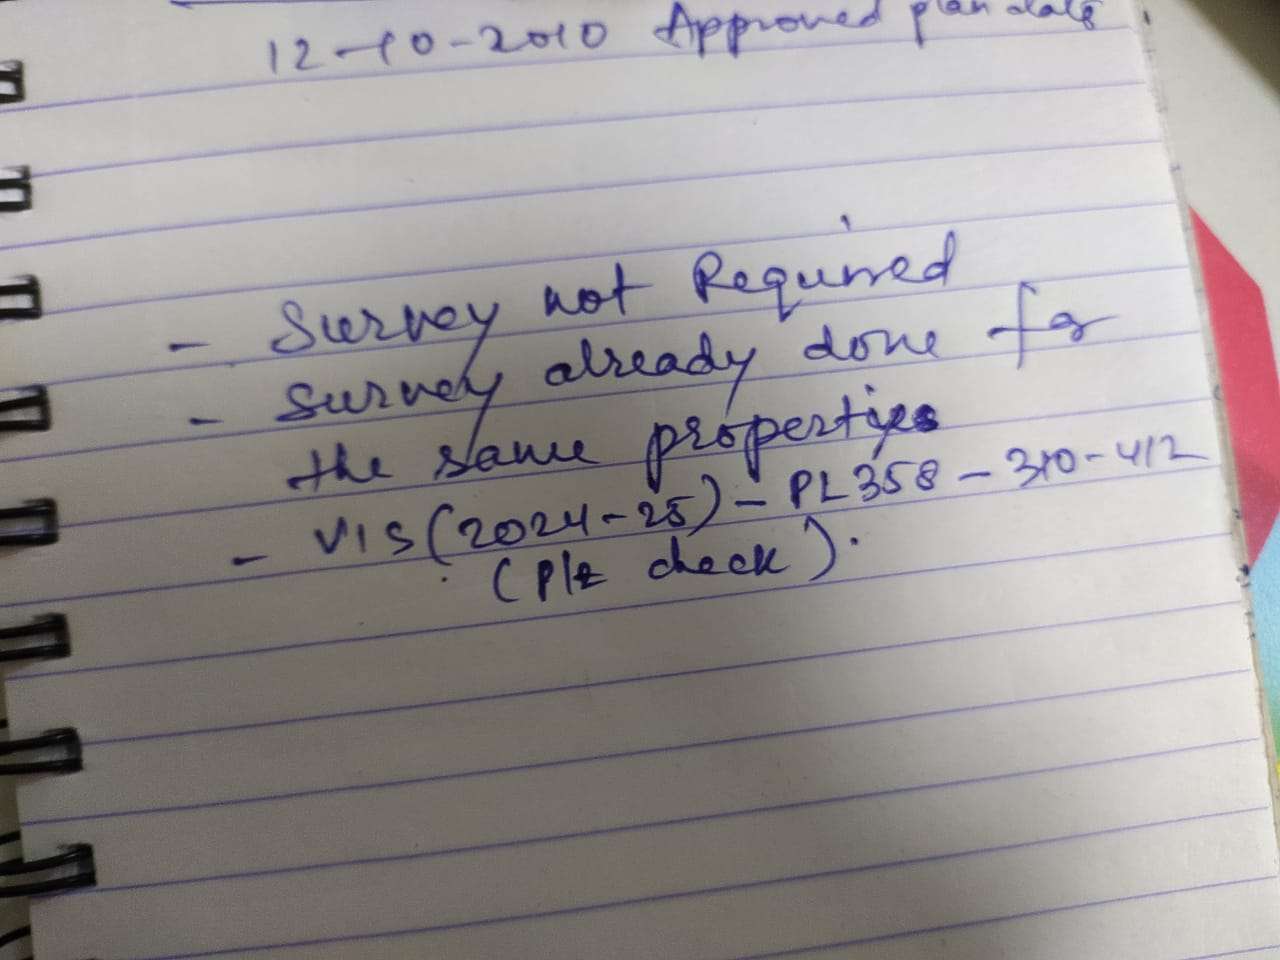 12-10-2010 Approved plan date
- Survey not Required
- Survey already done for
the same properties
- VIS (2024-25) - PL358 - 310-412
(Plz check).